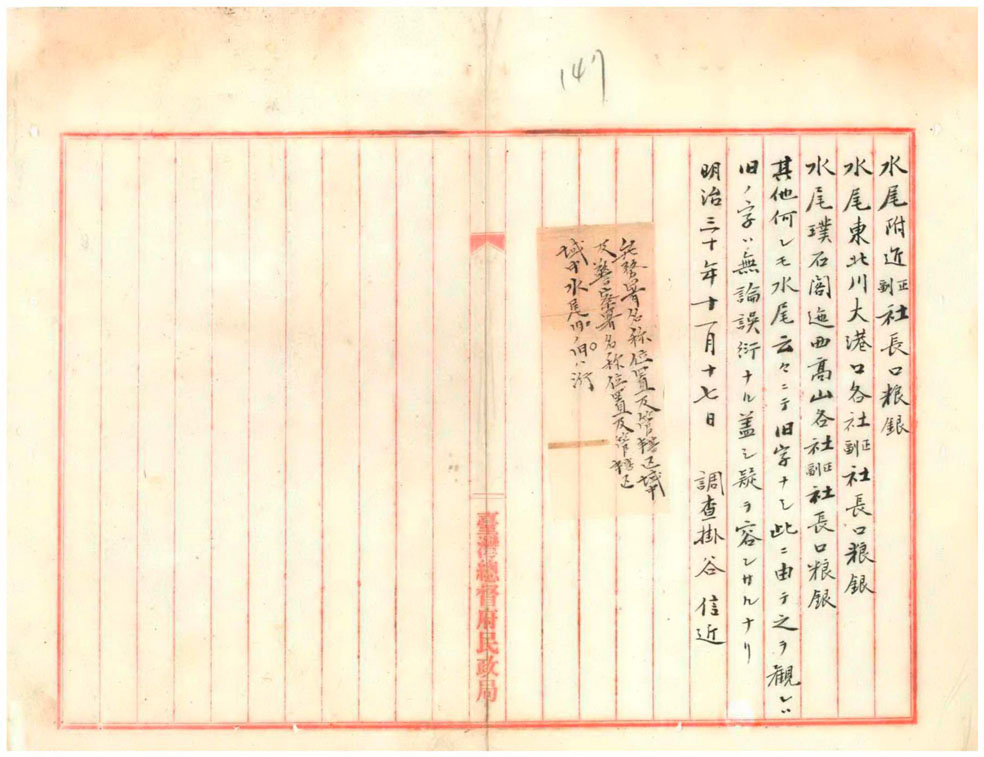 147
水尾附近正副社長口粮銀
水尾東北川大港口各社正副社長口粮銀
水尾璞石閣迤西高山各社正副社長口粮銀
其他何レモ水尾云々ニテ旧字ナシ此ニ由テ之ヲ観レバ
旧ノ字ハ無論誤衍ナル盖シ疑ヲ容レサルナリ
明治三十年十一月十七日 調査掛谷信近
署名称位置及管轄区域
及警察署名称位置及管轄区
域中水尾旧ハ衍
臺灣總督府民政局